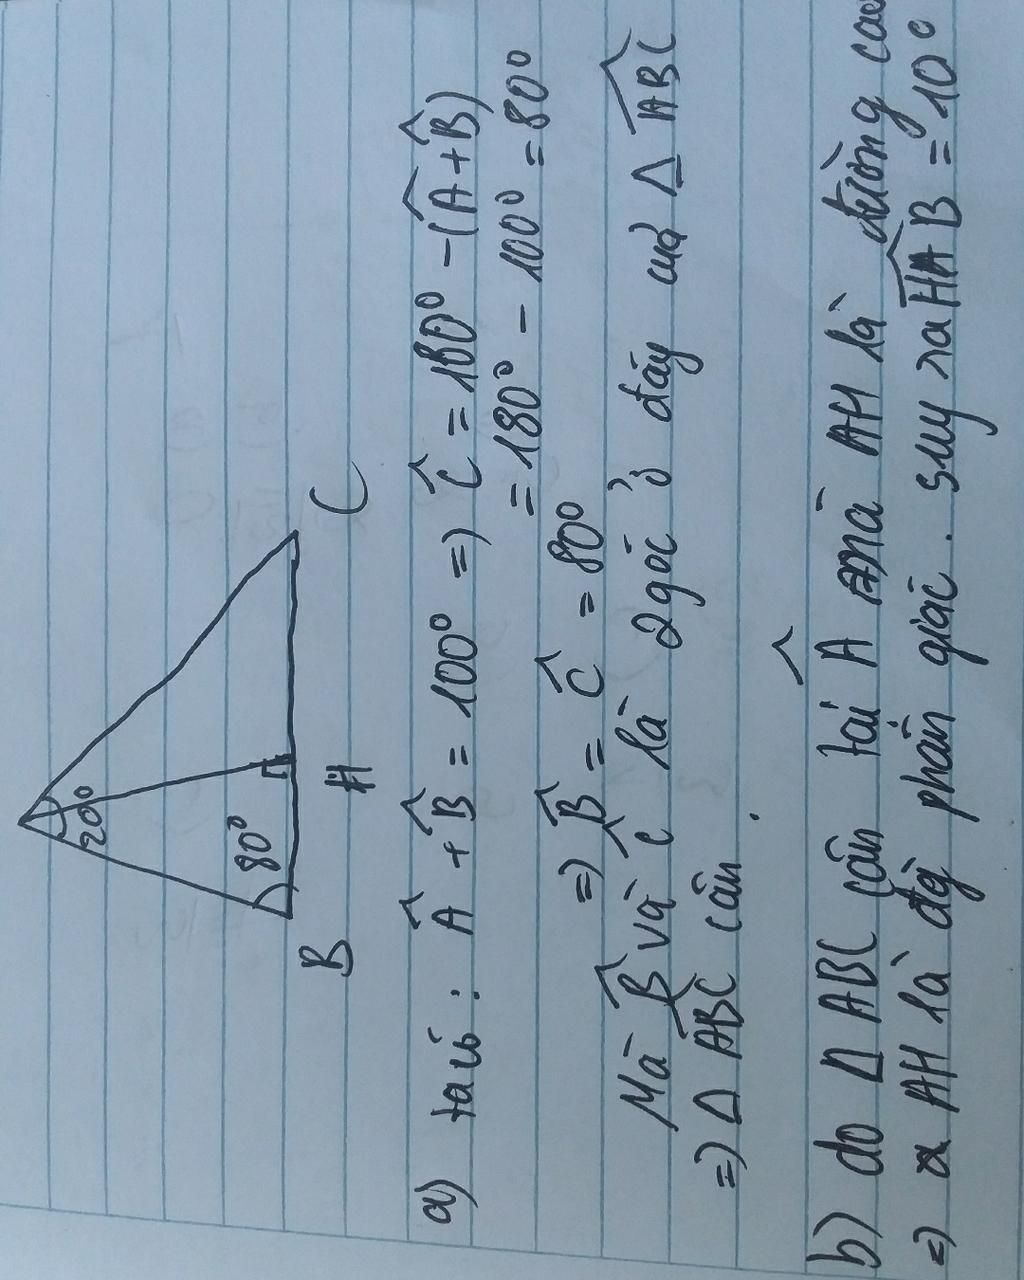 20°
80°
B H C
a) ta có: Â + B̂ = 100° => Ĉ = 180° - (Â + B̂)
= 180° - 100° = 80°
=> B̂ = Ĉ = 80°
Mà B̂ và Ĉ là 2 góc ở đáy của Δ ABC
=> Δ ABC cân
b) do Δ ABC cân tại A mà AH là đường cao
=> AH là đg phân giác. suy ra HAB = 10°